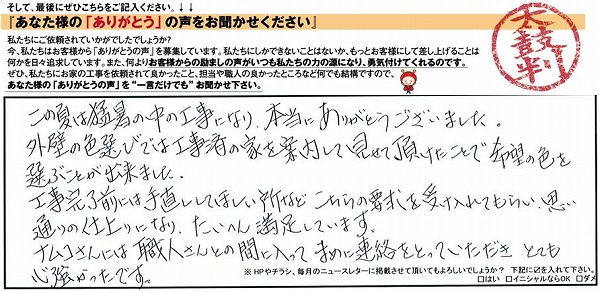 そして、最後にぜひこちらをご記入ください。↓↓
『あなた様の「ありがとう」の声をお聞かせください』
私たちにご依頼されていかがでしたでしょうか?
今、私たちはお客様から「ありがとうの声」を募集しています。私たちにしかできないことはないか、もっとお客様にして差し上げることは
何かを日々追求しています。また、何よりお客様からの励ましの声がいつも私たちの力の源になり、勇気付けてくれるのです。
ぜひ、私たちにお家の工事を依頼されて良かったこと、担当や職人の良かったところなど何でも結構ですので、
あなた様の「ありがとうの声」を“一言だけでも”お聞かせ下さい。
太鼓判
この夏は猛暑の中の工事になり、本当にありがとうございました。
外壁の色選びでは工事済の家を案内して見せて頂けたことで希望の色を
選ぶことが出来ました。
工事完了前には手直ししてほしい所など こちらの要求を受け入れてもらい、思い
通りの仕上りになり、たいへん満足しています。
ナムコさんには職人さんとの間に入って まめに連絡をとっていただき とても
心強かったです。
※HPやチラシ、毎月のニュースレターに掲載させて頂いてもよろしいでしょうか? 下記に☑を入れて下さい。
□はい □イニシャルならOK □ダメ